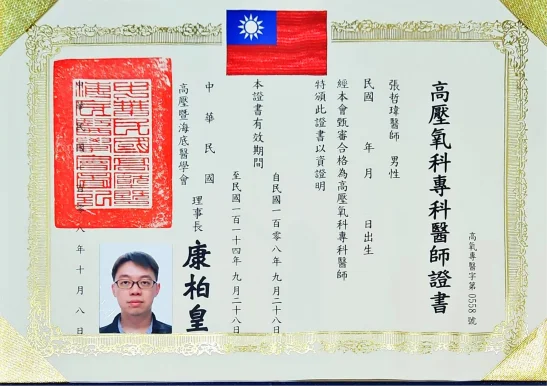 高壓氧科專科醫師證書
高氣專醫字第0558號
張哲瑋醫師 男性
民國 年 月 日出生
經本會甄審合格為高壓氧科專科醫師
特頒此證書以資證明
本證書有效期間
自民國一百零八年九月二十八日
至民國一百一十四年九月二十八日
中華民國
高壓暨海底醫學會
理事長 康柏皇
八年十月八日